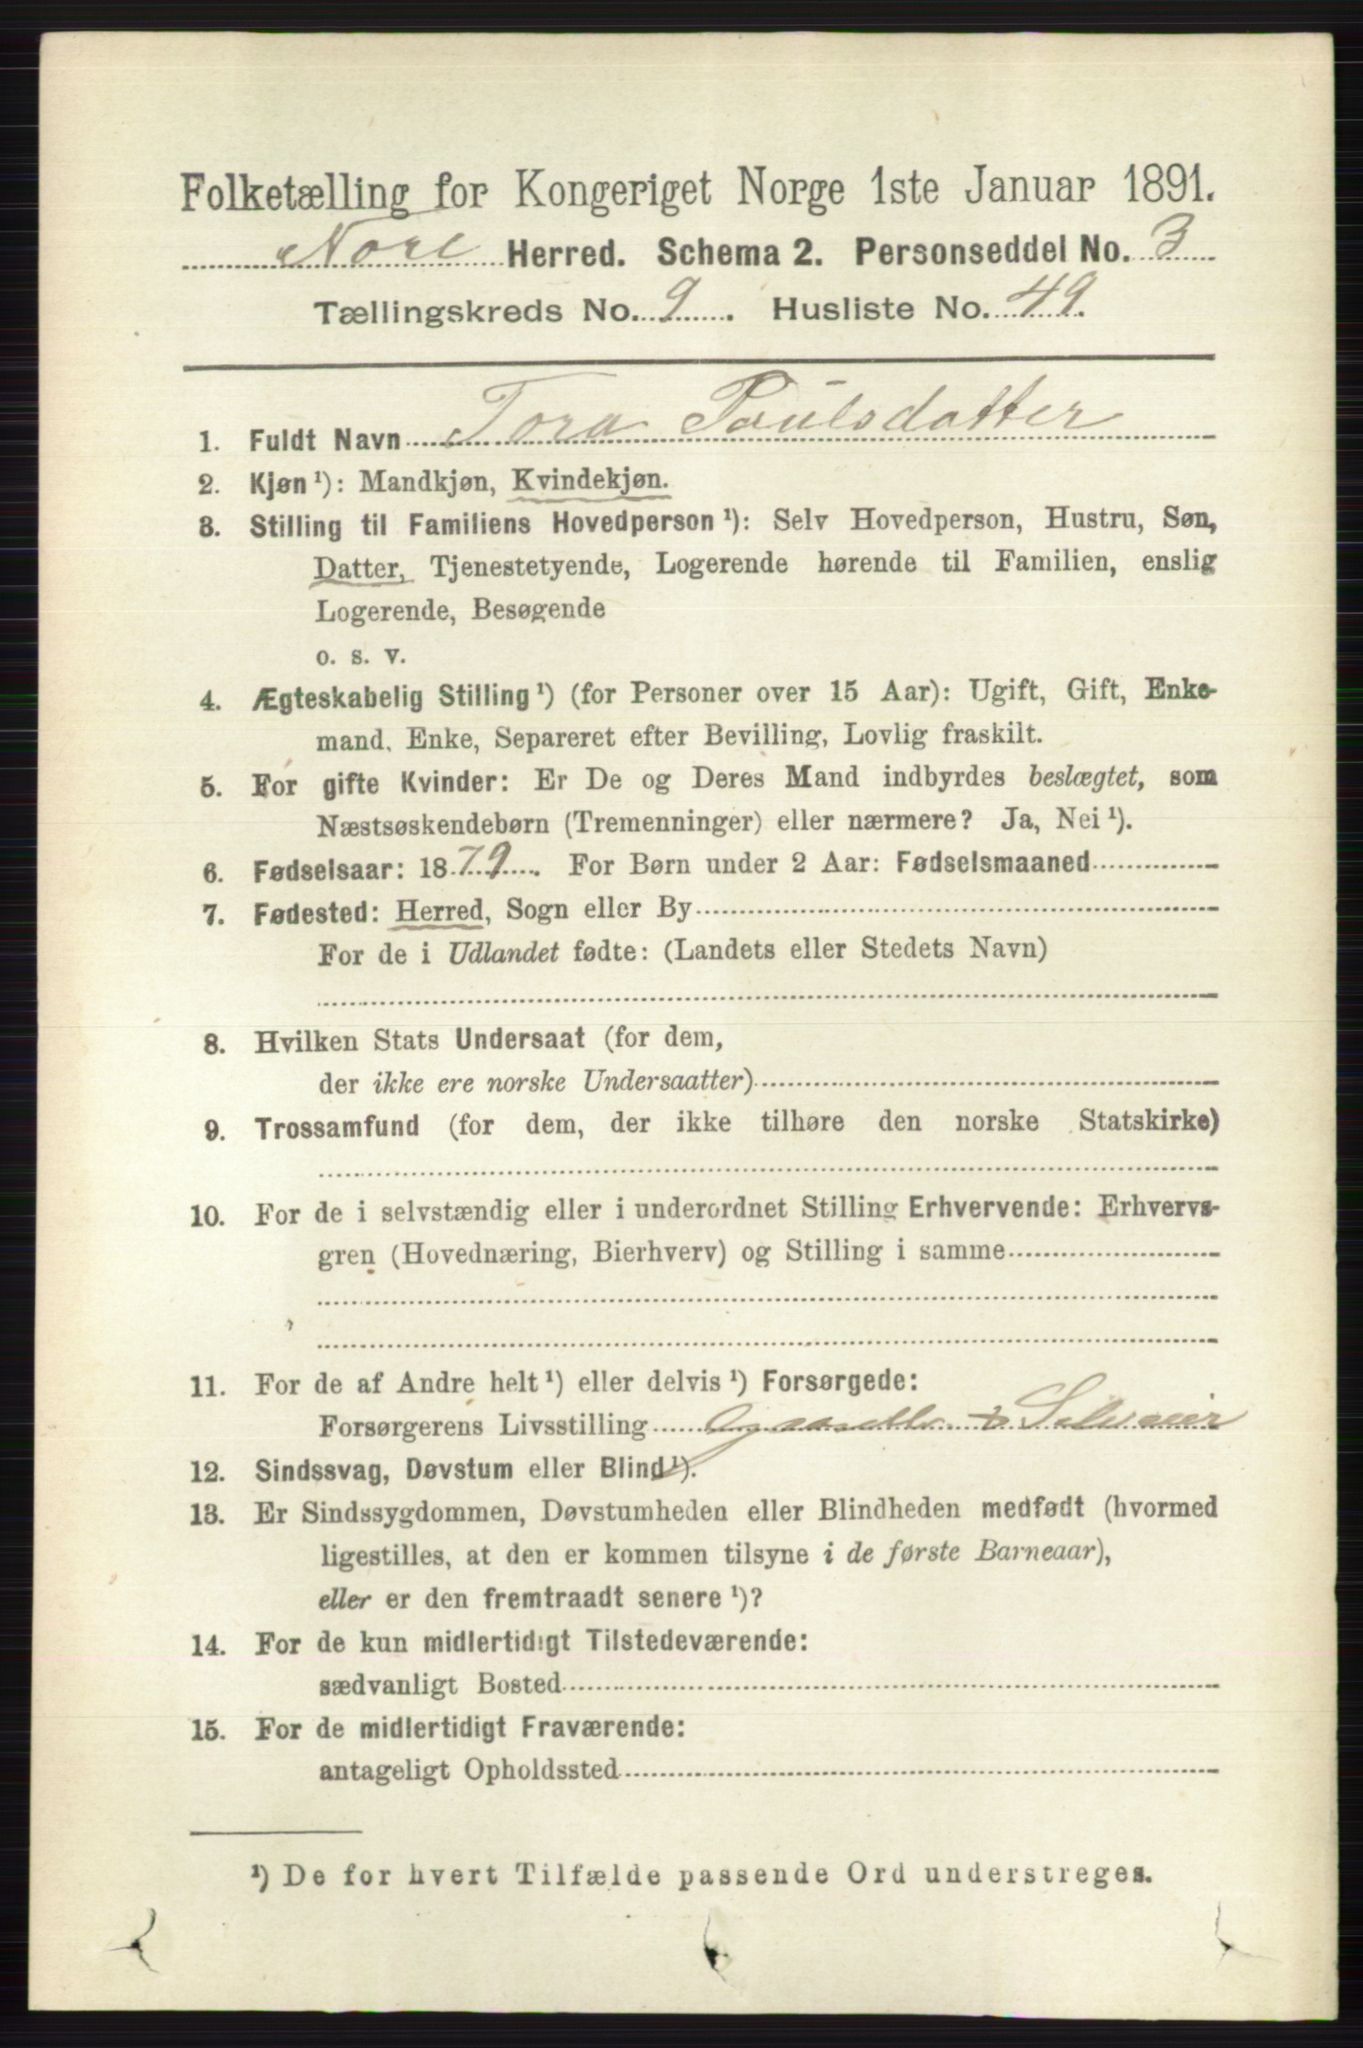 Folketælling for Kongeriget Norge 1ste Januar 1891.
Nore Herred. Schema 2. Personseddel No. 3
Tællingskreds No. 9. Husliste No. 49.
1. Fuldt Navn Tora Paulsdatter
2. Kjøn ¹): Mandkjøn, Kvindekjøn.
3. Stilling til Familiens Hovedperson ¹): Selv Hovedperson, Hustru, Søn,
Datter, Tjenestetyende, Logerende hørende til Familien, enslig
Logerende, Besøgende
o. s. v.
4. Ægteskabelig Stilling ¹) (for Personer over 15 Aar): Ugift, Gift, Enke-
mand, Enke, Separeret efter Bevilling, Lovlig fraskilt.
5. For gifte Kvinder: Er De og Deres Mand indbyrdes beslægtet, som
Næstsøskendebørn (Tremenninger) eller nærmere? Ja, Nei ¹).
6. Fødselsaar: 1879. For Børn under 2 Aar: Fødselsmaaned
7. Fødested: Herred, Sogn eller By
For de i Udlandet fødte: (Landets eller Stedets Navn)
8. Hvilken Stats Undersaat (for dem,
der ikke ere norske Undersaatter)
9. Trossamfund (for dem, der ikke tilhøre den norske Statskirke)
10. For de i selvstændig eller i underordnet Stilling Erhvervende: Erhvervs-
gren (Hovednæring, Bierhverv) og Stilling i samme
11. For de af Andre helt ¹) eller delvis ¹) Forsørgede:
Forsørgerens Livsstilling Selveier
12. Sindssvag, Døvstum eller Blind ¹).
13. Er Sindssygdommen, Døvstumheden eller Blindheden medfødt (hvormed
ligestilles, at den er kommen tilsyne i de første Barneaar),
eller er den fremtraadt senere ¹)?
14. For de kun midlertidigt Tilstedeværende:
sædvanligt Bosted
15. For de midlertidigt Fraværende:
antageligt Opholdssted
¹) De for hvert Tilfælde passende Ord understreges.